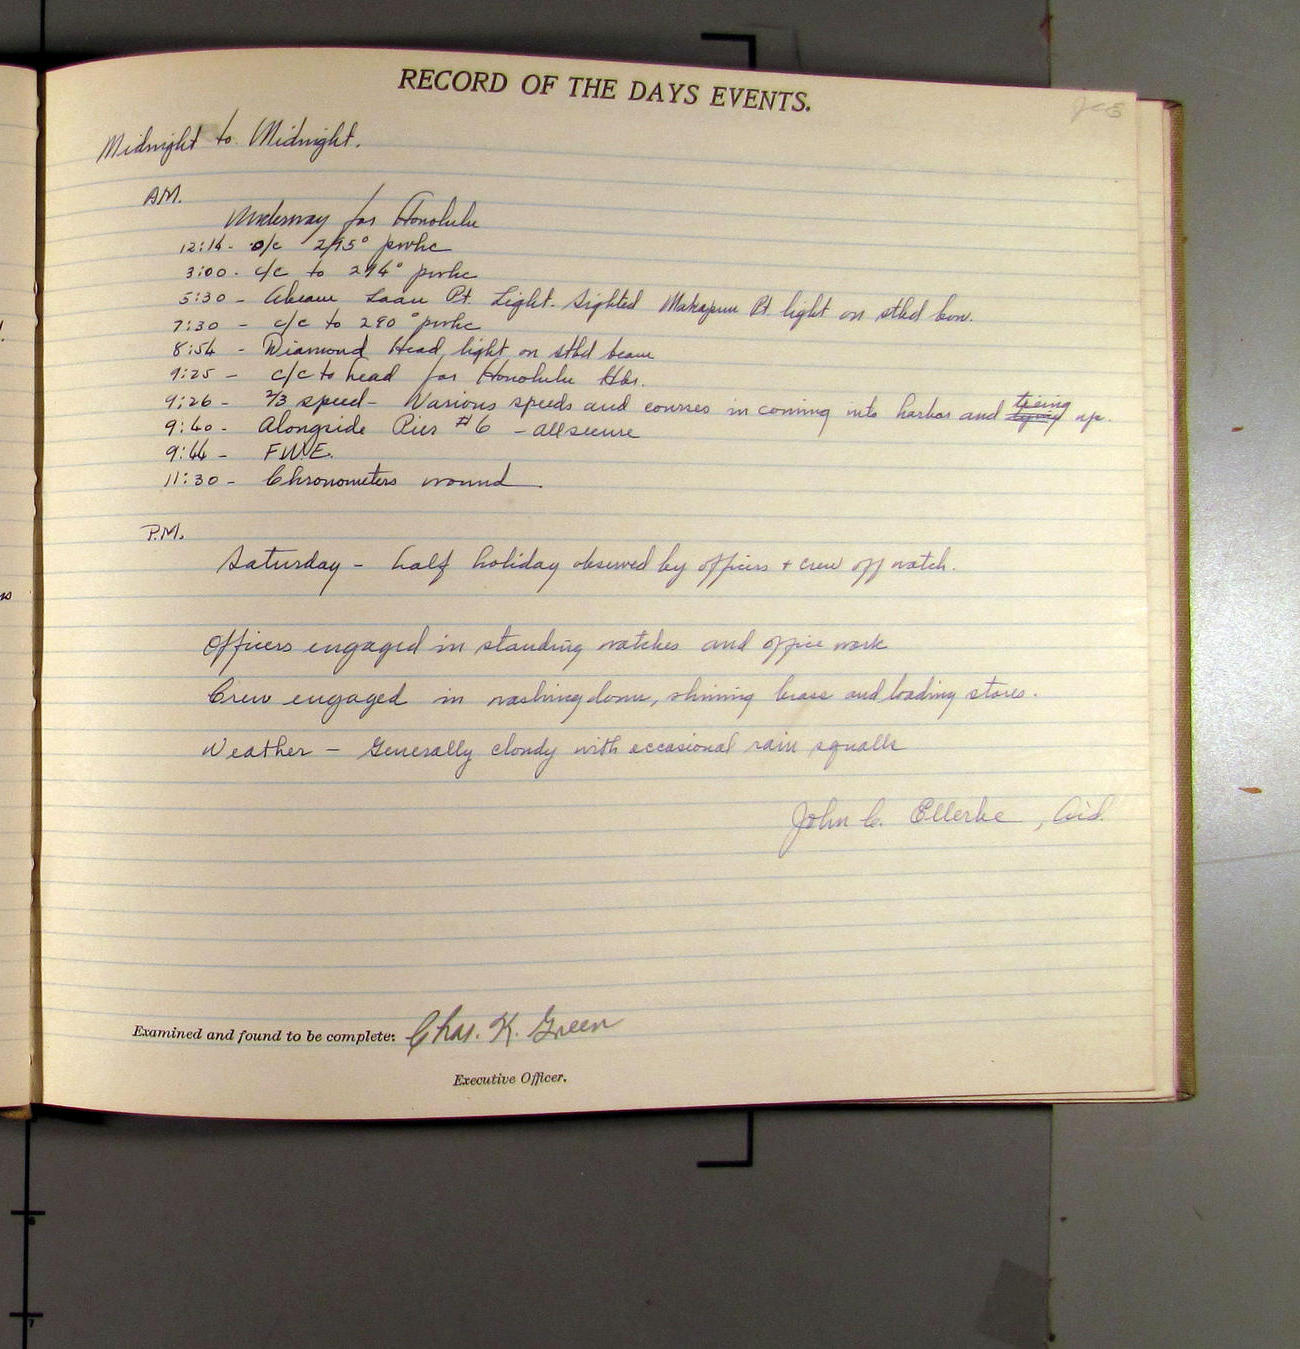 RECORD OF THE DAYS EVENTS.
JCE
Midnight to Midnight.
AM.
Underway for Honolulu
12:14 - c/c 295° pwhc
3:00 - c/c to 294° pwhc
5:30 - Abeam Laau Pt. Light. Sighted Makapuu Pt light on stbd bow.
7:30 - c/c to 290° pwhc
8:54 - Diamond Head light on stbd beam
9:25 - c/c to head for Honolulu Hbr.
9:26 - 2/3 speed - Various speeds and courses in coming into harbor and tieing up.
9:40 - Alongside Pier #6 - all secure
9:44 - F.W.E.
11:30 - Chronometers wound.
P.M.
Saturday - half holiday observed by officers + crew off watch.
Officers engaged in standing watches and office work
Crew engaged in washing down, shining brass and loading stores.
Weather - Generally cloudy with occasional rain squalls
John C. Ellerbe, Aid.
Examined and found to be complete: Chas. K. Green
Executive Officer.